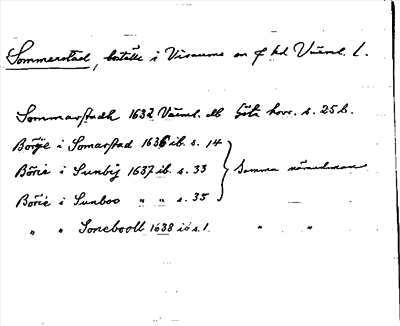 Sommerstad, bortätte i Visnums en f hd Värml. l.
Sommarstadh 1632 Värml. db Göta hovr. s. 25 b.
Börje i Somarstad 1636 ib. s. 14
Börie i Sunbÿ 1637 ib. s. 33 } Samma nämndeman
Börie i Sunboo " " s. 35 —
" " Soneboolt 1638 ib s. 1. " "